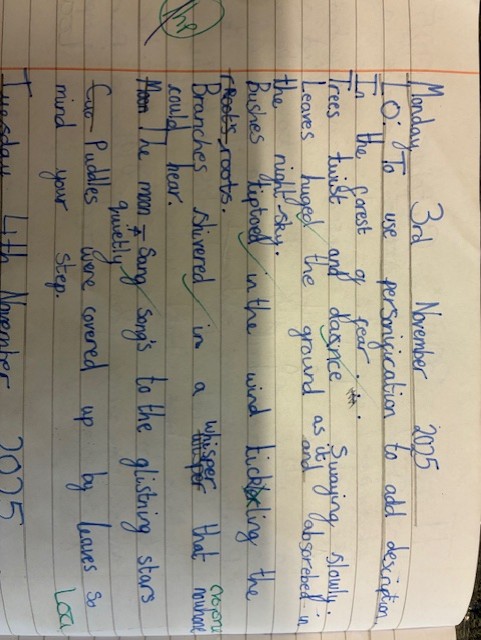 hp
Monday 3rd November 2025
LO: To use personification to add description
In the forest of fear...
Trees twist and dasnce Swaying slowly.
Leaves huged the ground as it and absorebed in
the night sky.
Bushes tiptoed in the wind tickling the
roots, roots.
Branches shivered in a whisper that nowhere anyone
could hear.
Moon The moon Sang song's to the glistning stars
quietly
Puddles were covered up by leaves so
mind your step.
Tuesday 4th November 2025